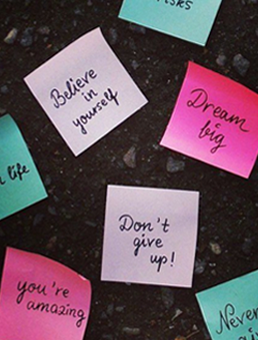 Believe
in
yourself
Dream
big
life
Don't
give
up!
you're
amazing
Never